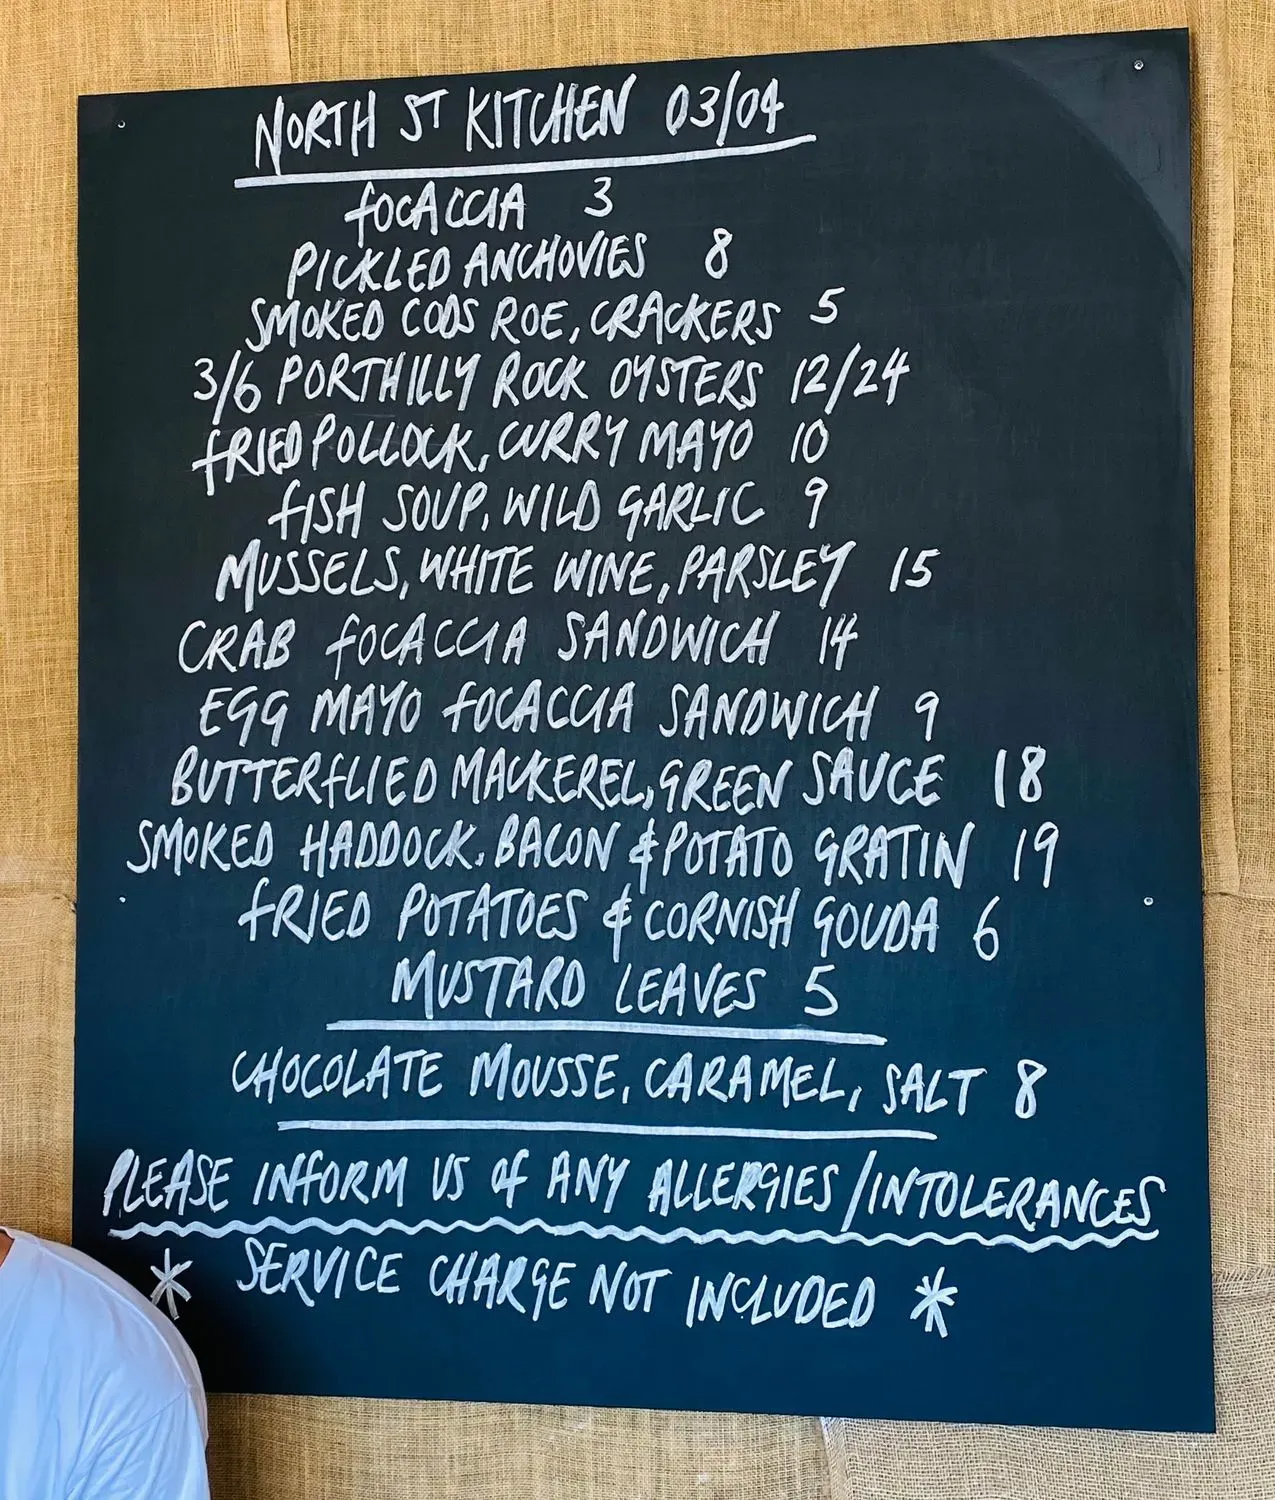 NORTH ST KITCHEN 03/04
FOCACCIA 3
PICKLED ANCHOVIES 8
SMOKED CODS ROE, CRACKERS 5
3/6 PORTHILLY ROCK OYSTERS 12/24
FRIED POLLOCK, CURRY MAYO 10
FISH SOUP, WILD GARLIC 9
MUSSELS, WHITE WINE, PARSLEY 15
CRAB FOCACCIA SANDWICH 14
EGG MAYO FOCACCIA SANDWICH 9
BUTTERFLIED MACKEREL, GREEN SAUCE 18
SMOKED HADDOCK, BACON & POTATO GRATIN 19
FRIED POTATOES & CORNISH GOUDA 6
MUSTARD LEAVES 5
CHOCOLATE MOUSSE, CARAMEL, SALT 8
PLEASE INFORM US OF ANY ALLERGIES/INTOLERANCES
* SERVICE CHARGE NOT INCLUDED *